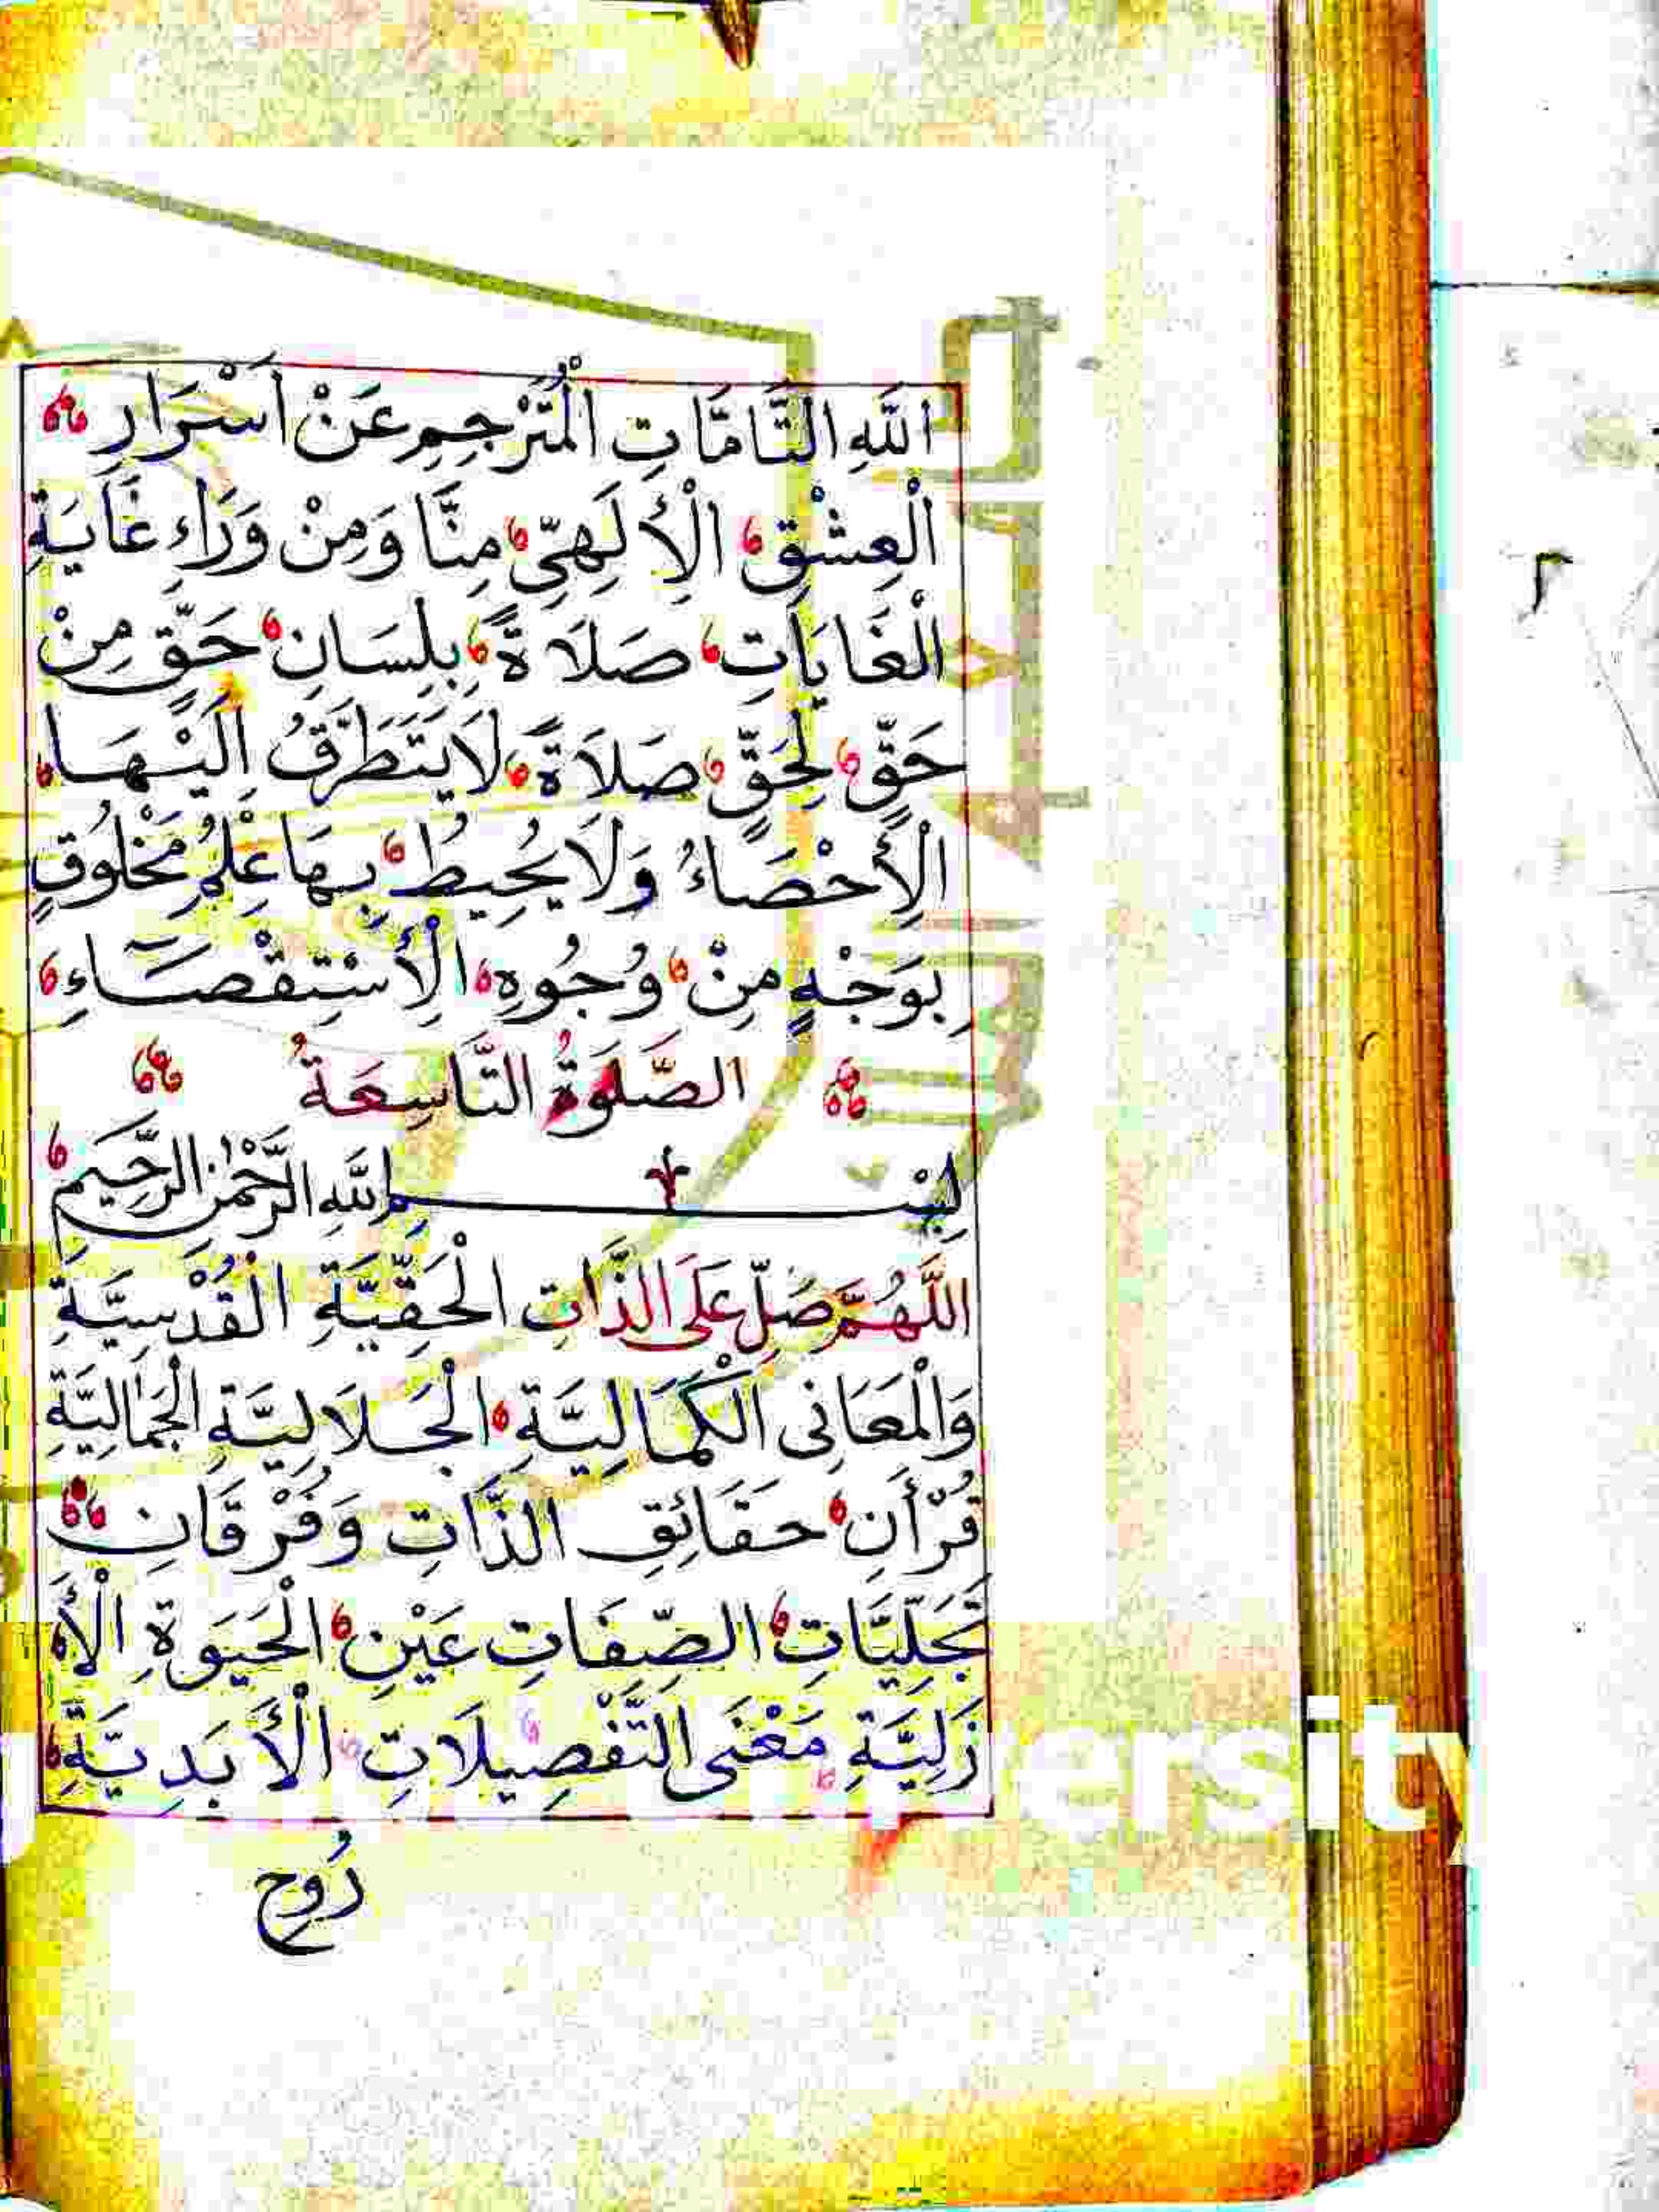 اللّٰهِ التَّامَّاتِ الْمُتَرْجِمِ عَنْ اَسْرَارِ
الْعِشْقِ الْاِلَهِيِّ مِنَّا وَمِنْ وَرَاءِ غَايَةِ
الْغَايَاتِ صَلَاةً بِلِسَانِ حَقٍّ مِنْ
حَقٍّ لِحَقٍّ صَلَاةً لَايَتَطَرَّقُ اِلَيْهَا
الْاِحْصَاءُ وَلَا يُحِيطُ بِهَا عِلْمُ مَخْلُوقٍ
بِوَجْهٍ مِنْ وُجُوهِ الْاِسْتِقْصَاءِ
الصَّلَوةُ التَّاسِعَةُ
بِسْمِ اللّٰهِ الرَّحْمٰنِ الرَّحِيمِ
اللَّهُمَّ صَلِّ عَلَى الذَّاتِ الْحَقِّيَّةِ الْقُدْسِيَّةِ
وَالْمَعَانِى الْكَمَالِيَّةِ الْجَلَالِيَّةِ الْجَمَالِيَّةِ
قُرْأَنِ حَقَائِقِ الذَّاتِ وَفُرْقَانِ
تَجَلِّيَّاتِ الصِّفَاتِ عَيْنِ الْحَيَوةِ الْأَ
زَلِيَّةِ مَعْنَى التَّفْصِيلَاتِ الْأَبَدِيَّةِ
رُوحِ
ersity